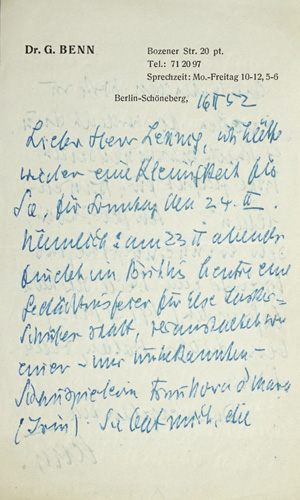 Dr. G. BENN
Bozener Str. 20 pt.
Tel.: 71 20 97
Sprechzeit: Mo.-Freitag 10-12, 5-6
Berlin-Schöneberg, 16 II 52
Lieber Herr Lennig, ich hätte
wieder eine Kleinigkeit für
Sie, für Sonntag den 24. II.
Nämlich: am 23 II abends
findet im British Centre eine
Gedächtnisfeier für Else Lasker-
Schüler statt, veranstaltet von
einer - mir unbekannten -
Schauspielerin
(Irin). Sie bat mich, die